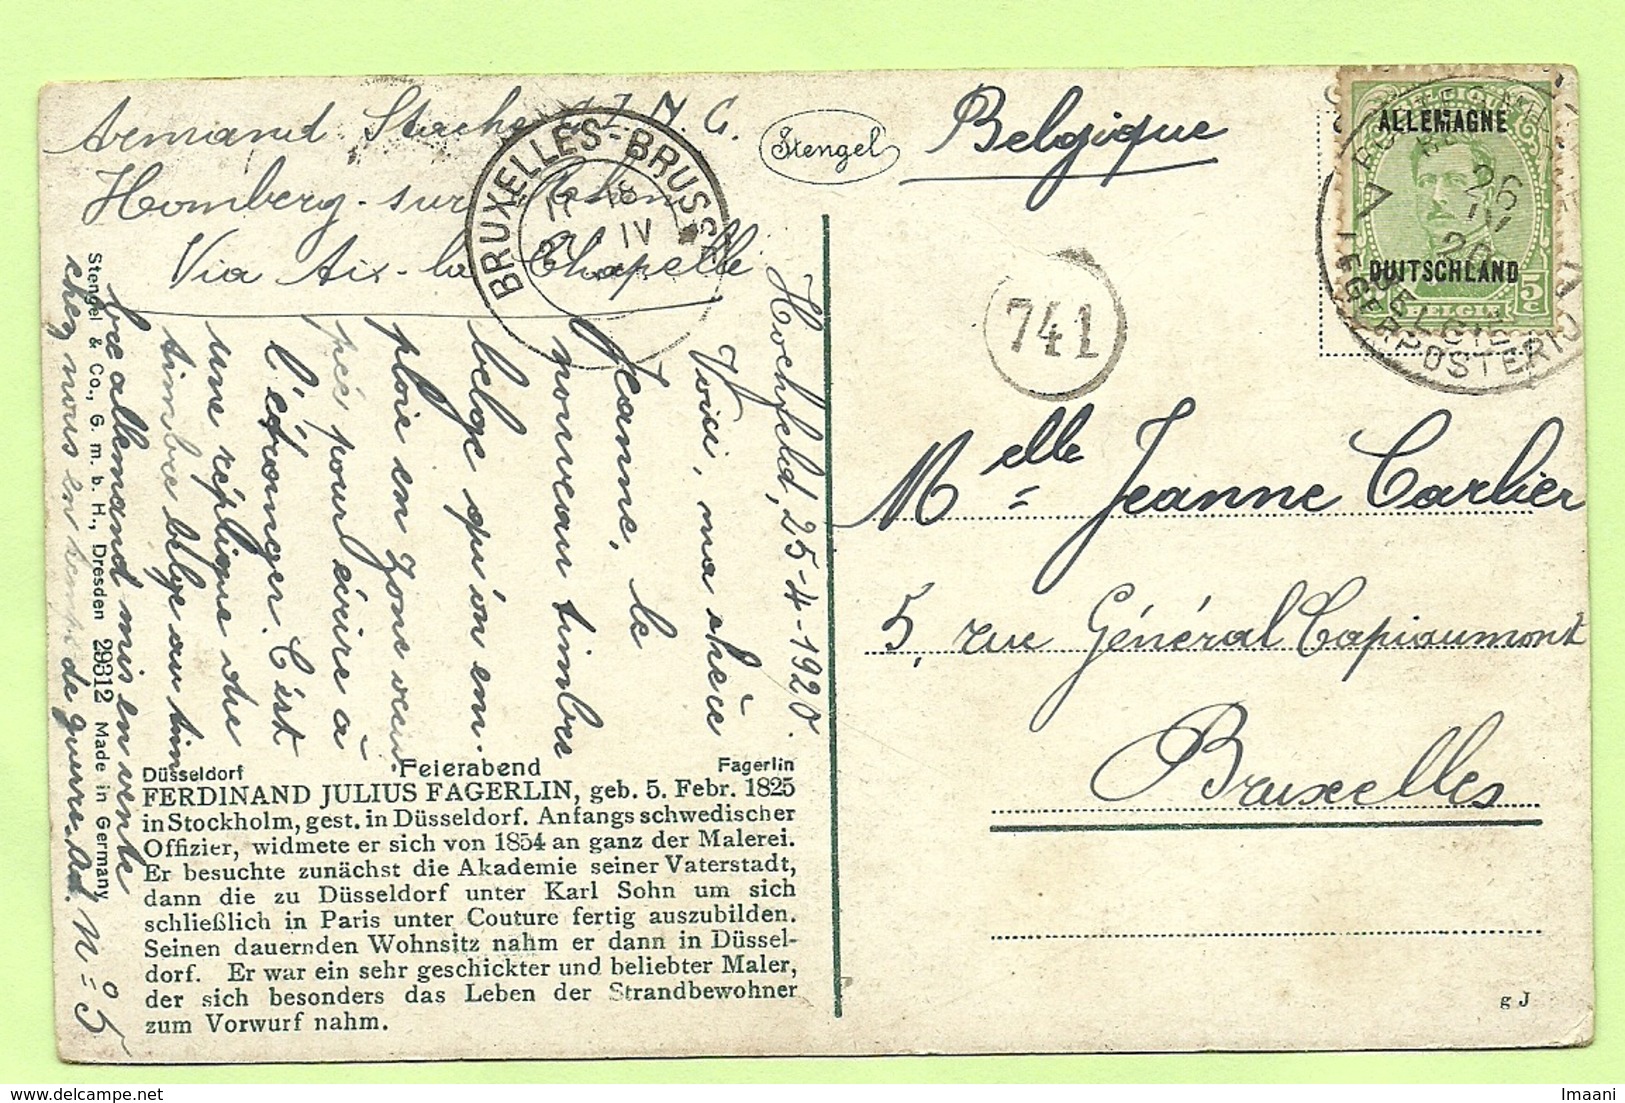 Armand Stache
N. G.
Homberg-sur-Rhin
Via Aix-la-Chapelle
Stengel
BRUXELLES-BRUSSEL
17-18
IV
Belgique
BELGIQUE
ALLEMAGNE
DUITSCHLAND
5 C
BELGIE
26
IV
20
BELGIE
LEGERPOSTERIJ
741
Melle Jeanne Carlier
5, rue Général Capiaumont
Bruxelles
Hochfeld, 25-4-1920.
Voici, ma chère
Jeanne, le
nouveau timbre
belge qu'on em
ploie en zone occu
pée pour écrire à
l'étranger. C'est
une réplique du
timbre belge au tim
bre allemand mis en vente
chez nous en temps de guerre.
N° 5
Stengel & Co., G. m. b. H., Dresden 29312 Made in Germany
Düsseldorf Feierabend Fagerlin
FERDINAND JULIUS FAGERLIN, geb. 5. Febr. 1825
in Stockholm, gest. in Düsseldorf. Anfangs schwedischer
Offizier, widmete er sich von 1854 an ganz der Malerei.
Er besuchte zunächst die Akademie seiner Vaterstadt,
dann die zu Düsseldorf unter Karl Sohn um sich
schließlich in Paris unter Couture fertig auszubilden.
Seinen dauernden Wohnsitz nahm er dann in Düssel-
dorf. Er war ein sehr geschickter und beliebter Maler,
der sich besonders das Leben der Strandbewohner
zum Vorwurf nahm.
g J
Imaani